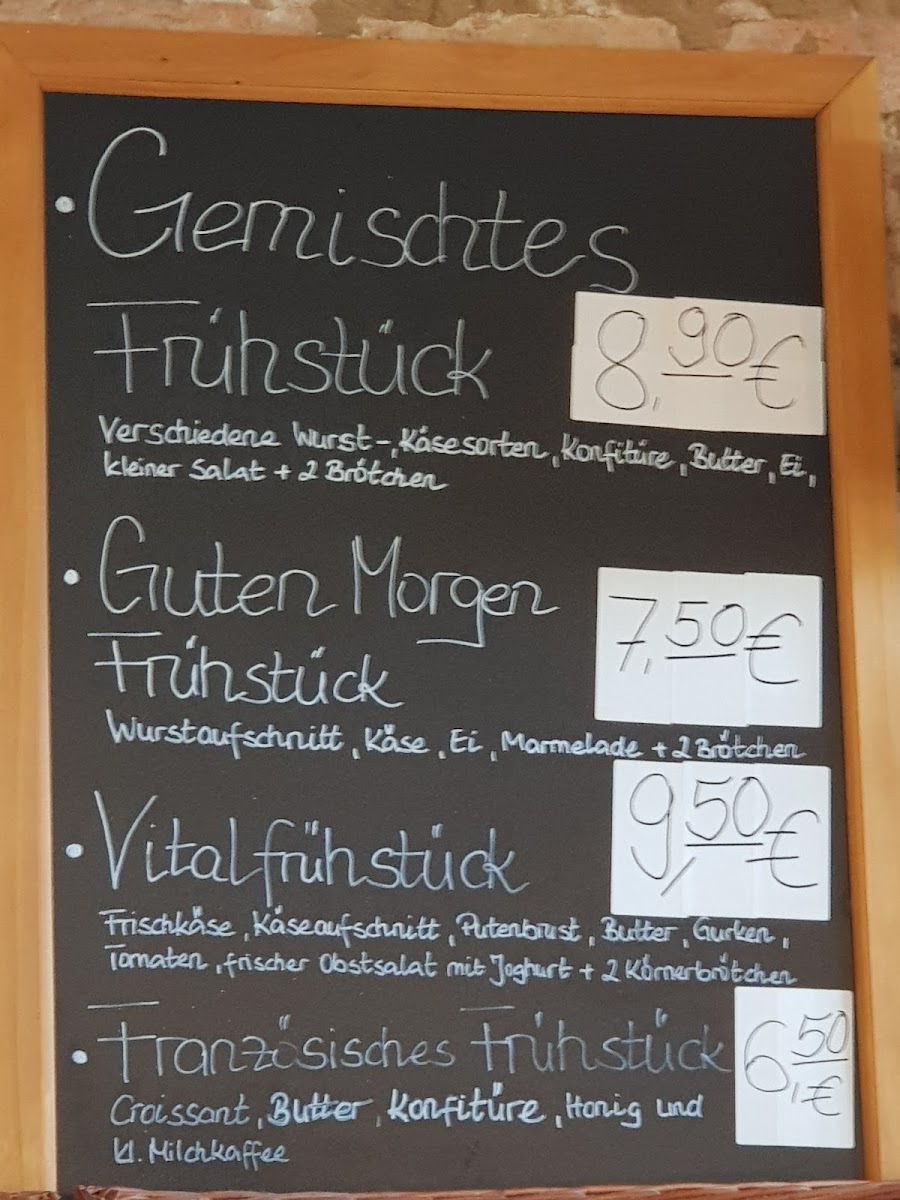 • Gemischtes
Frühstück 8,90 €
Verschiedene Wurst-, Käsesorten, Konfitüre, Butter, Ei,
kleiner Salat + 2 Brötchen
• Guten Morgen
Frühstück 7,50 €
Wurstaufschnitt, Käse, Ei, Marmelade + 2 Brötchen
• Vitalfrühstück 9,50 €
Frischkäse, Käseaufschnitt, Putenbrust, Butter, Gurken,
Tomaten, frischer Obstsalat mit Joghurt + 2 Körnerbrötchen
• Französisches Frühstück 6,50 €
Croissant, Butter, Konfitüre, Honig und
kl. Milchkaffee